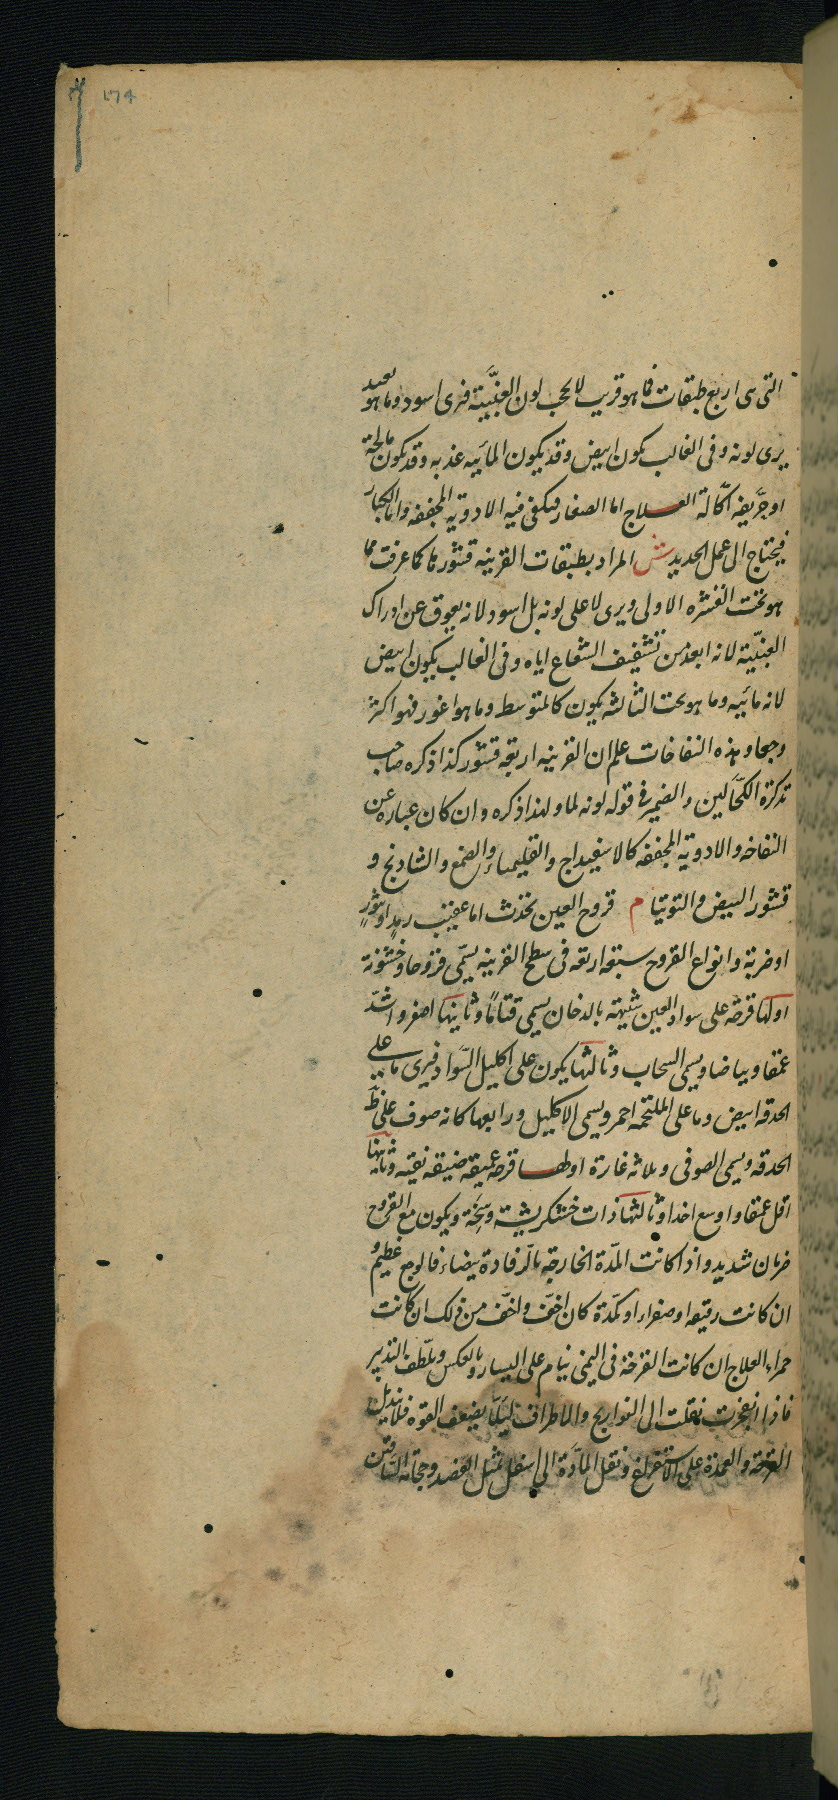 ١٧٤
التى هى اربع طبقات فما هو قريب لا يحجب لون العنبيّة فيرى اسود وما هو بعيد
يرى لونه وفى الغالب يكون ابيض وقد يكون المائيه عذبه وقد يكون مالحة
او حرّيفه اكّالة العلاج اما الصغار فيكفى فيه الادوية المجففه واما الكبار
فيحتاج الى عمل الحديد ش المراد بطبقات القرنيه قشورها كما عرفت فما
هو تحت القشره الاولى ويرى لا على لونه بل اسود لانه يعوق عن ادراك
العنبيّة لانه ابعد من تشفيف الشعاع اياه وفى الغالب يكون ابيض
لانه مائيه وما هو تحت الثالثه يكون كالمتوسط وما هو اغور فهو اكثر
وجعا و هذه النفاخات علم ان القرنيه اربعه قشور كذا ذكره صاحب
تذكرة الكحّالين والضمير فى قوله لونه لما ولهذا ذكره وان كان عباره عن
النفاخه والادوية المجففه كالاسفيداج والقليمياء والصمغ والشادنج و
قشور البيض والتوتيا م قروح العين تحدث اما عقيب رمد او بثور
او ضربة وانواع القروح سبعه اربعه فى سطح القرنيه يسمّى قروحا وخشونة
اولها قرحة على سواد العين شبيهة بالدخان يسمى قتامًا وثانيها اصغر واشدّ
عمقا وبياضا ويسمى السحاب وثالثها يكون على اكليل السّواد فيرى ما على
الحدقه ابيض وما على الملتحمه احمر ويسمى الاكليل ورابعها كانه صوف على ظ
الحدقه ويسمى الصوفى وثلاثه غائرة اولها قرحه عميقه ضيقه نقيه وثانيها
اقل عمقا واوسع اخذا وثالثها ذات خشكريشة وسخة ويكون مع القروح
ضربان شديد واذا كانت المدّة الخارجه بالرّفادة بيضاء فالوجع عظيم و
ان كانت رقيقه او صفراء او كمدة كان اخفّ واخفّ من ذلك ان كانت
حمراء العلاج ان كانت القرحة فى اليمنى نيام على اليسار وبالعكس ويلطّف التدبير
فاذا انفجرت نقلت الى الفراريج والاطراف ليَلّا يضعف القوه فلا يندمل
القرحة والعمدة على الاستفراغ ونقل المادّة الى اسفل بمثل الفصد وحجامة السّاقين